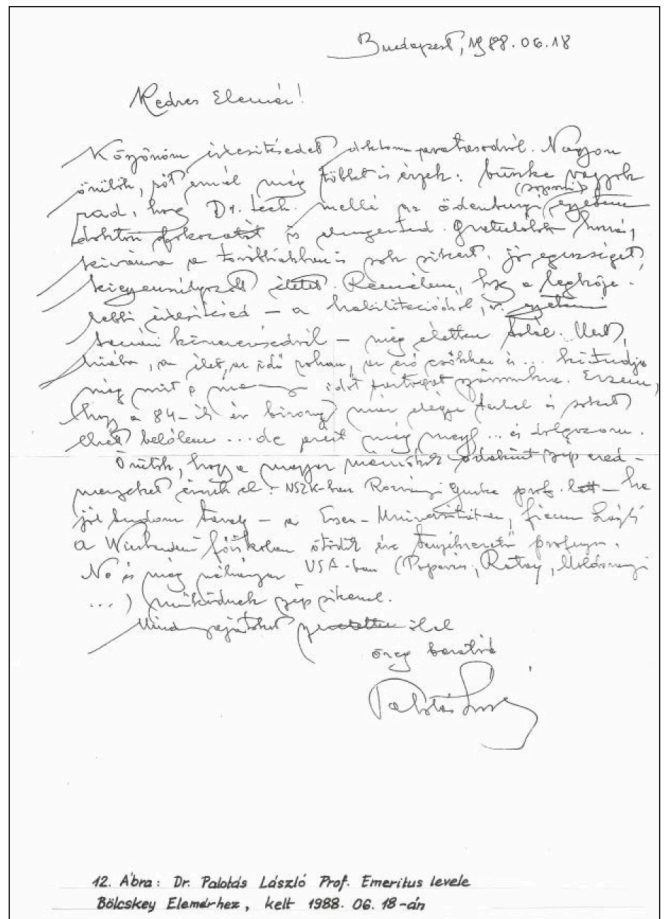 Budapest, 1988.06.18
Kedves Elemér!
Köszönöm értesítésedet doktorrá avatásodról. Nagyon
örülök, sőt ennél még többet is érzek: büszke vagyok
(soproni)
rád, hogy Dr. tech. mellé az ödenburgi egyetem
doktori fokozatát is elnyerted. Gratulálok hozzá,
kívánva a továbbiakban is sok sikert, jó egészséget,
kiegyensúlyozott életet. Remélem, hogy a legköze-
lebbi értesítésed – a habilitációdról, v. egyetemi
tanári kinevezésedről – még életben talál. Mert,
hiába, az élet, az idő rohan, az erő csökken és ... ki tudja
még mit s mennyi időt tartogat számunkra. Érzem,
hogy a 84-ik év bizony már eléggé terhel és sokat
elvett belőlem ... de azért még megy ... és dolgozom.
Örülök, hogy a magyar mérnökök odakint szép ered-
ményeket érnek el. NSZK-ban Rozsnyai prof. lett – ha
jól tudom tavaly – az Essen-i fiam Lajos
a Wiesbadeni főiskolán ötödik éve professzor.
No és még néhányan USA-ban (Popovics, Rátay,
...) működnek szép sikerrel.
Mindnyájatokat szeretettel ölel
öreg barátod
Palotás László
12. Ábra: Dr. Palotás László Prof. Emeritus levele
Bölcskey Elemérhez, kelt 1988. 06. 18-án